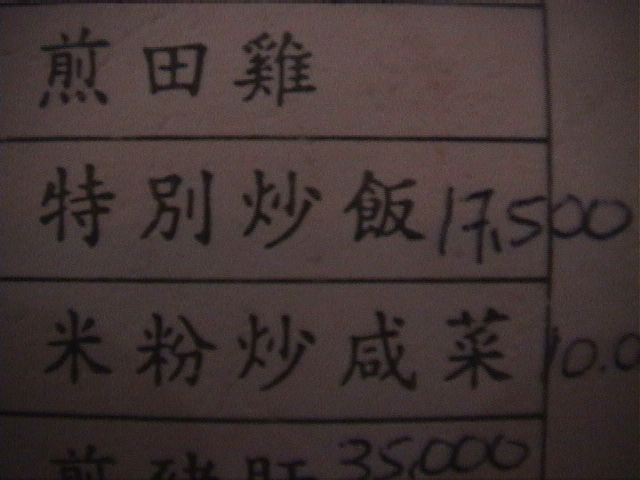 煎田雞
特別炒飯 17,500
米粉炒咸菜 10.0
煎豬肝 35,000